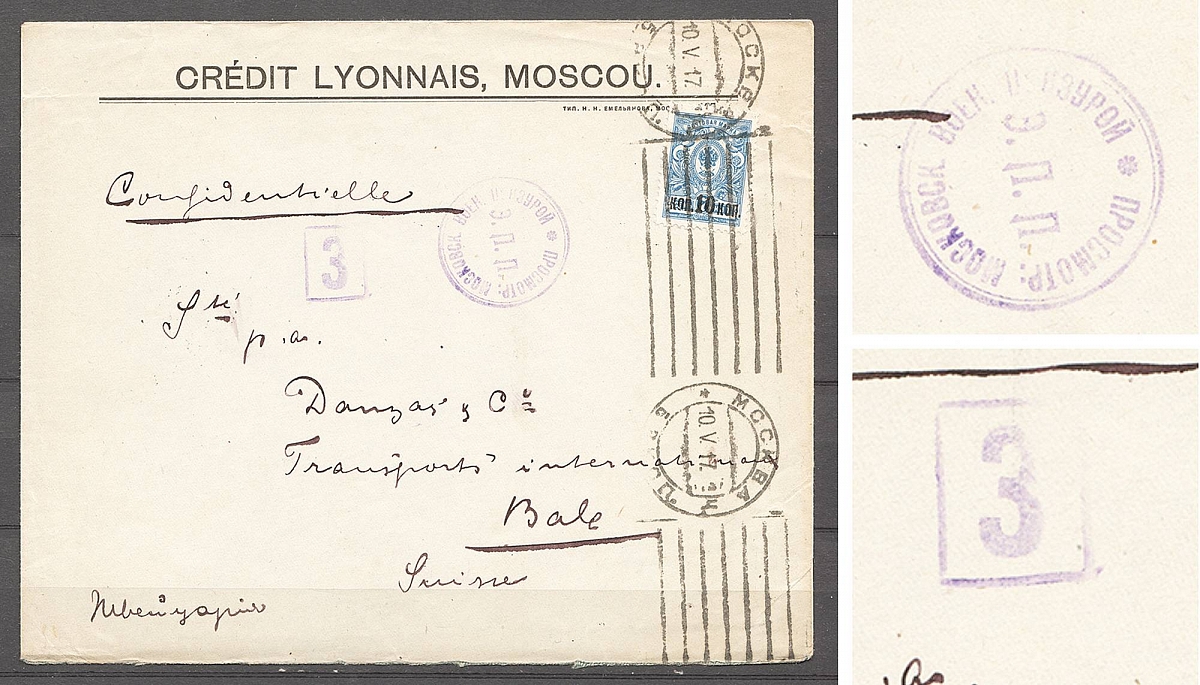 CRÉDIT LYONNAIS, MOSCOU.
ТИП. Н. Н. ЕМЕЛЬЯНОВА, МОС
МОСКВА
10.V.17.
коп. 10 коп.
Confidentielle
ПРОСМОТР: МОСКОВСК. ВОЕН. ЦЕНЗУРОЙ *
Э. Д. П.
3
Sté
p. a.
Danzas & Cie
Transports internationaux
Bale
Suisse
МОСКВА
10.V.17.
Швейцарія
ПРОСМОТР: МОСКОВСК. ВОЕН. ЦЕНЗУРОЙ *
Э. Д. П.
3